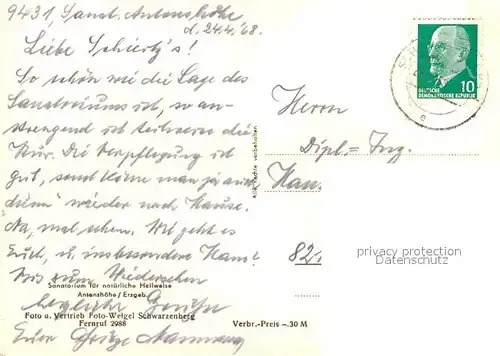 9431, Sanat. Antonshöhe
d. 24.4.'68.
Liebe Schiertz's!
So schön wie die Lage des
Sanatoriums ist, so an-
strengend ist teilweise die
Kur. Die Verpflegung ist
gut, sonst käme man ja auch
dünn wieder nach Hause.
Na, mal sehen. Wie geht es
Euch, u. insbesondere Hans?
Bis zum Wiedersehen
herzliche Grüße
Euer
Sanatorium für natürliche Heilweise
Antonshöhe / Erzgeb.
Foto u. Vertrieb Foto-Weigel Schwarzenberg
Fernruf 2988
Verbr.-Preis —.30 M
Alle Rechte vorbehalten
DEUTSCHE
DEMOKRATISCHE REPUBLIK
10
Herrn
Dipl.= Ing.
Han
82
privacy protection
Datenschutz